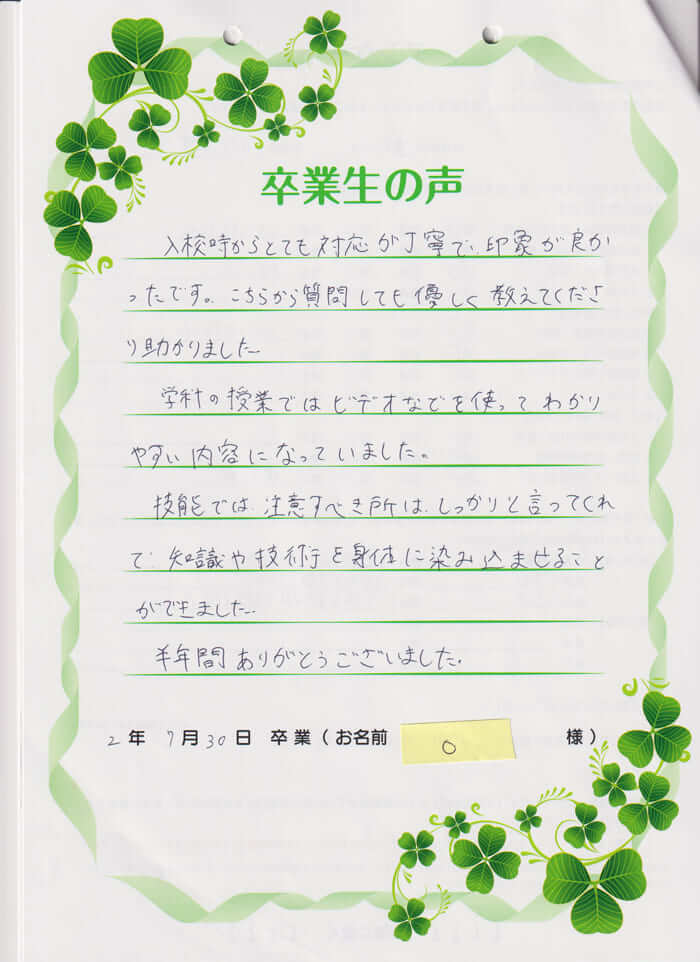 卒業生の声
入校時からとても対応が丁寧で、印象が良か
ったです。こちらから質問しても優しく教えてくださ
り助かりました。
学科の授業ではビデオなどを使ってわかり
やすい内容になっていました。
技能では、注意すべき所は、しっかりと言ってくれ
て、知識や技術を身体に染み込ませること
ができました。
半年間ありがとうございました。
2年 7月30日 卒業(お名前 O 様)